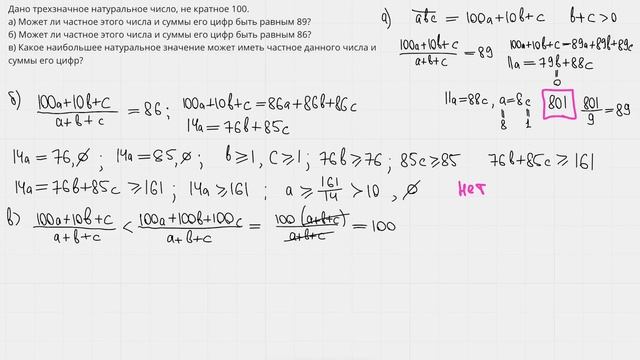 Дано трехзначное натуральное число, не кратное 100.
а) Может ли частное этого числа и суммы его цифр быть равным 89?
б) Может ли частное этого числа и суммы его цифр быть равным 86?
в) Какое наибольшее натуральное значение может иметь частное данного числа и
суммы его цифр?
а) abc = 100a+10b+c b+c>0
(100a+10b+c)/(a+b+c) = 89 100a+10b+c=89a+89b+89c
11a=79b+88c
=
0
11a=88c, a=8c 801 801/9 = 89
= =
8 1
б) (100a+10b+c)/(a+b+c) = 86; 100a+10b+c=86a+86b+86c
14a=76b+85c
14a=76, ∅; 14a=85, ∅; b≥1, c≥1; 76b≥76; 85c≥85 76b+85c≥161
14a=76b+85c≥161; 14a≥161; a≥161/14>10, ∅ нет
в) (100a+10b+c)/(a+b+c) < (100a+100b+100c)/(a+b+c) = 100(a+b+c)/(a+b+c) = 100